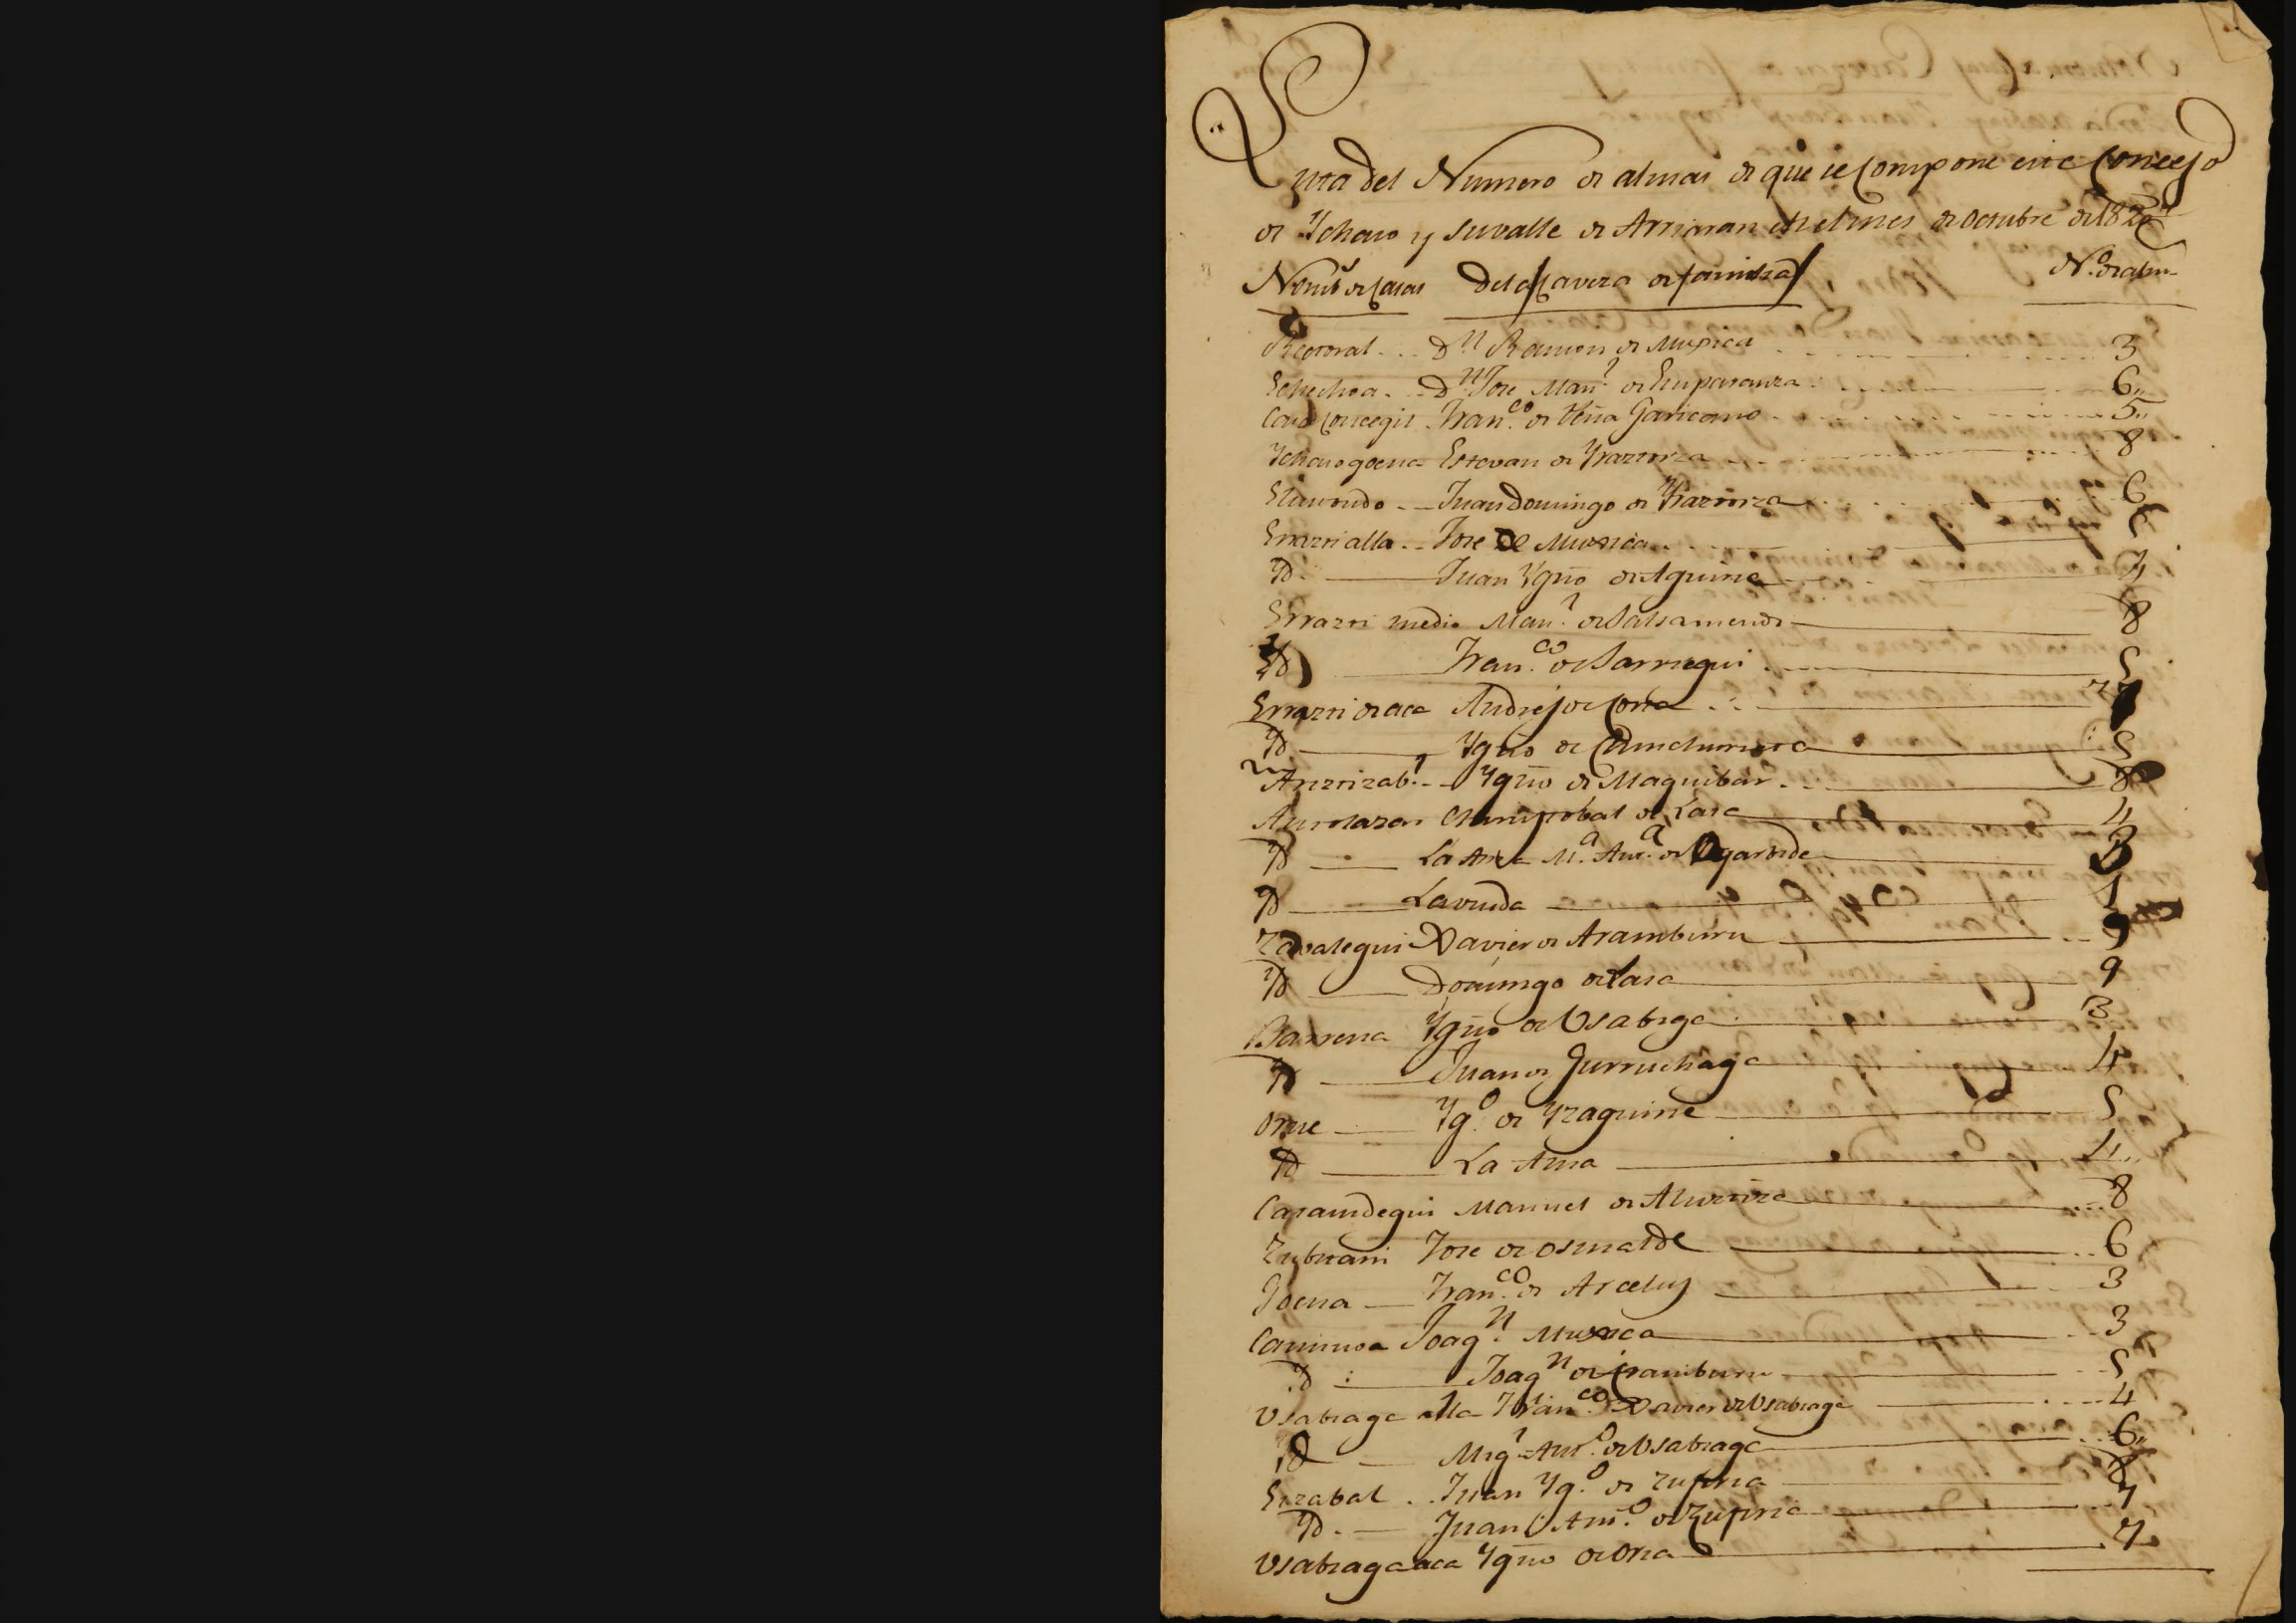 Lista del Numero de almas de que se Compone este Concejo
de Ychaso y su valle de Arriaran en el mes de Octubre de 182
Nomb.s de Casas Dela Cavera de familia N.o de alm.
Rectoral D.n Ramon de Muxica 3
Echechoa D.n Jose Man.l de Emparanza 6
Casa Concegil Fran.co de Peña Garicano 5
Ychasogoena Estevan de Yraztorza 8
Elaurondo Juan Domingo de Yraztorza 6
Errazti alla Jose de Muxica 6
Yd. Juan Ygn̄o de Aguirre
Errazti medio Man.l de Salsamendi 8
Yd Fran.co de Sarriegui 5
Errazti de aca Andres de Oria 7
Yd Ygn̄o de 5
Ariztizab.l Ygn̄o de Maguibar 8
Christobal de Lasa 4
Yd La Ama M.a Ant.a de Ugartode 3
Yd La viuda 1
Zavalegui Xavier de Aramburu 9
Yd Domingo de Lasa 9
Barrena Ygn̄o de Usabiga 3
Yd Juan de Gurruchaga 4
Orue Yg.o de Yzaguirre 5
Yd La Ama 4
Casamdegui Manuel de Alustiza 8
Zubicain Jose de Osinalde 6
Goena Fran.co de Arcelus 3
Caminoa Joaq.n Muxica 3
Yd Joaq.n de Aramburu 5
Usabiaga alla Fran.co Xavier de Usabiaga 4
Yd Mig.l Ant.o de Usabiaga 6
Eizabal Juan Yg.o de Zufiria 8
Yd. Juan Ant.o de Zufiria 7
Usabiaga aca Ygn̄o de Oria 7